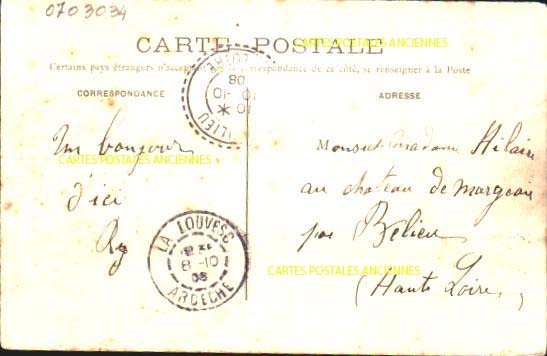 0703034
CARTE POSTALE
CARTES POSTALES ANCIENNES
Certains pays étrangers n'acceptant pas la correspondance de ce côté, se renseigner à la Poste
CORRESPONDANCE
ADRESSE
08
10-10
Un bonjour
d'ici
CARTES POSTALES ANCIENNES
Monsieur Madame Hilaire
au chateau de
par Belieu
(Haute Loire)
LA LOUVESC
8-10
08
ARDECHE
CARTES POSTALES ANCIENNES